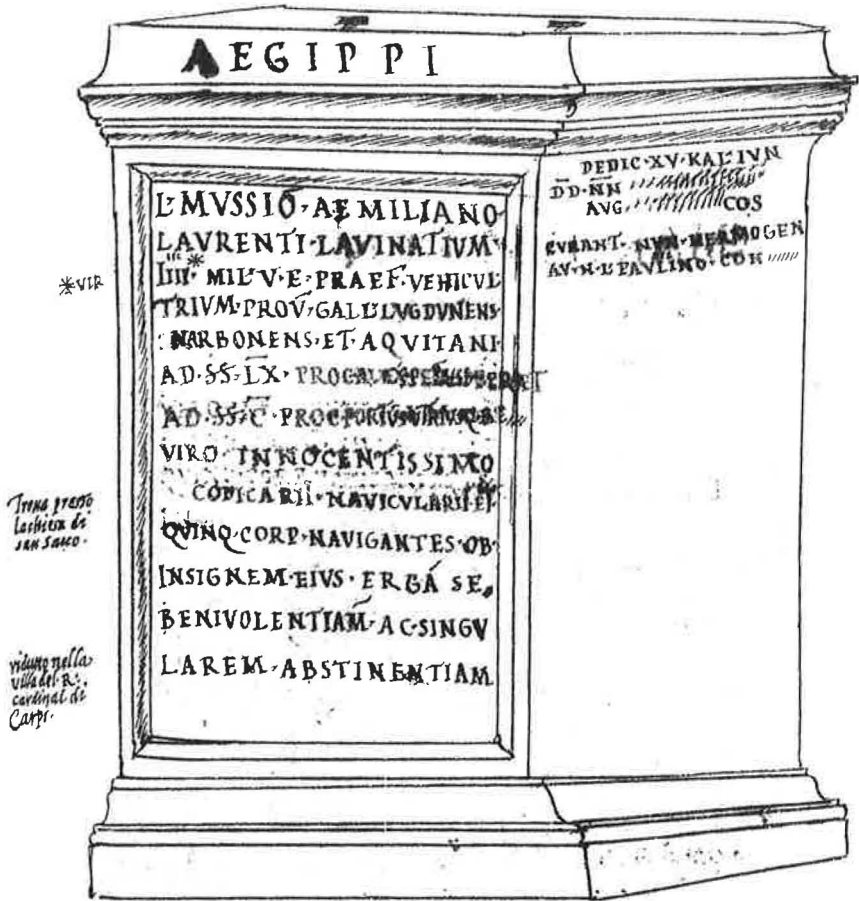 AEGIPPI
L·MVSSIO·AEMILIANO
LAVRENTI·LAVINATIVM
IIII·* MIL·V·E·PRAEF·VEHICVL
TRIVM·PROV·GALL·LVGDVNENS
NARBONENS·ET·AQVITANI
AD·SS·LX·
AD·SS·C·PROC
VIRO·INNOCENTISSIMO
CODICARII·NAVICVLARII·ET
QVINQ·CORP·NAVIGANTES·OB·
INSIGNEM·EIVS·ERGA SE
BENIVOLENTIAM·AC·SINGV
LAREM·ABSTINENTIAM
DEDIC·XV·KAL·IVN
DD·NN
AVG COS
CVRANT· HERMOGEN
PAVLINO·
*VIR
Trona presso
la chiesa di
san
viduto nella
villa del R:
cardinal di
Carpi·